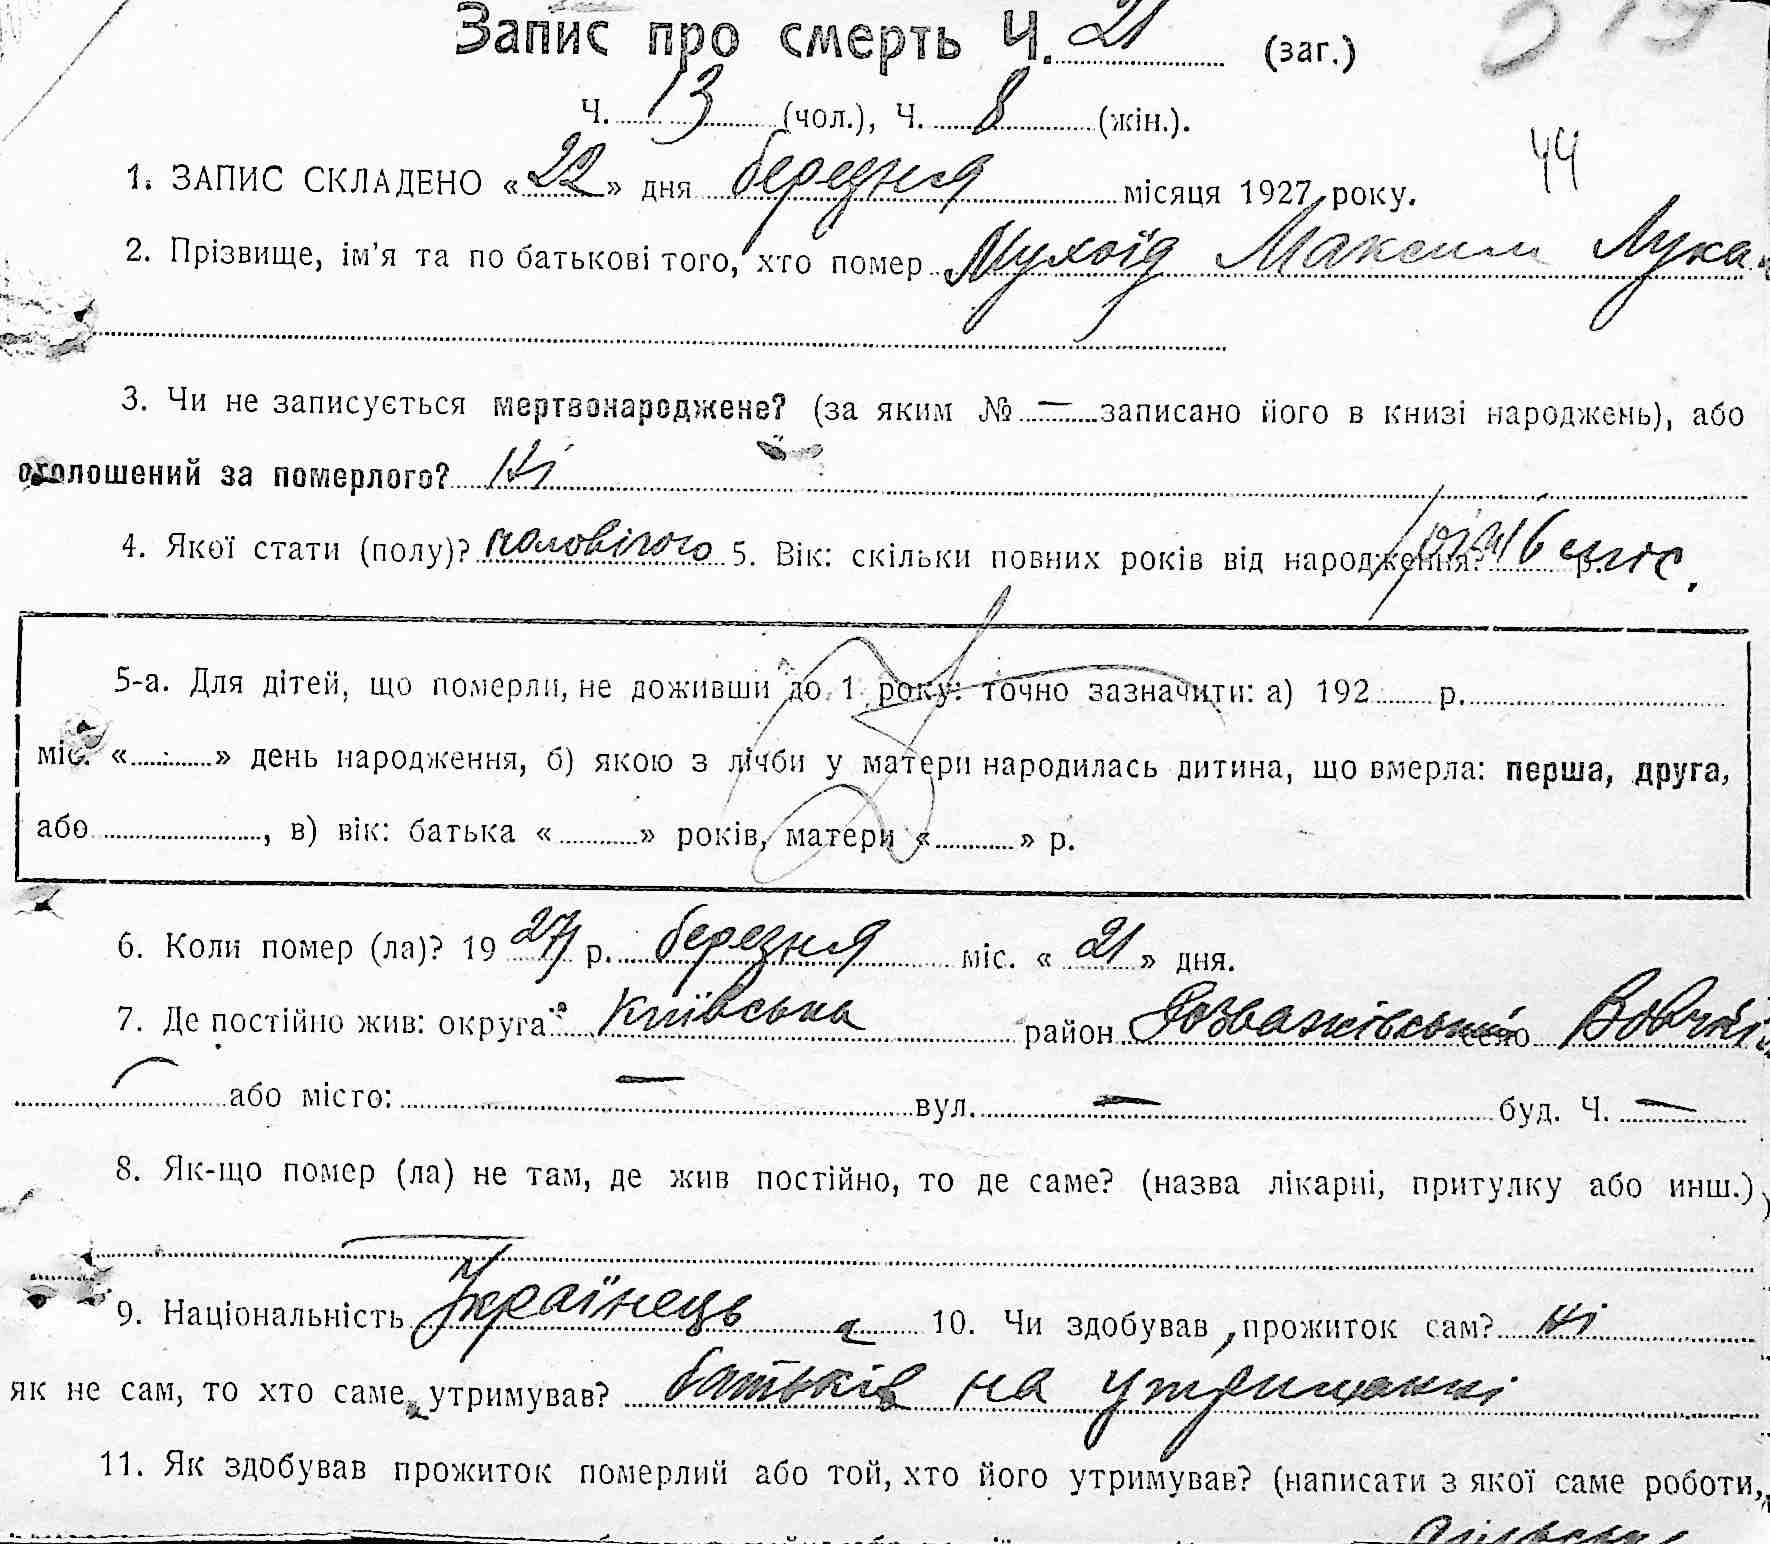 Запис про смерть Ч. 21 (заг.)
Ч. 13 (чол.), Ч. 8 (жін.).
44
1. ЗАПИС СКЛАДЕНО «22» дня березня місяця 1927 року.
2. Прізвище, ім'я та по батькові того, хто помер Мухоїд Максим Лука
3. Чи не записується мертвонароджене? (за яким № — записано його в книзі народжень), або
оголошений за померлого? Ні
4. Якої стати (полу)? чоловічого 5. Вік: скільки повних років від народження? 1 рік 6 міс.
5-а. Для дітей, що померли, не доживши до 1 року: точно зазначити: а) 192 р.
міс. « » день народження, б) якою з лічби у матери народилась дитина, що вмерла: перша, друга,
або , в) вік: батька « » років, матери « » р.
6. Коли помер (ла)? 1927 р. березня міс. «21» дня.
7. Де постійно жив: округа Київська район Розважівський село
або місто: — вул. — буд. Ч. —
8. Як-що помер (ла) не там, де жив постійно, то де саме? (назва лікарні, притулку або инш.)
9. Національність Українець 10. Чи здобував прожиток сам? ні
як не сам, то хто саме утримував? батьків на утриманні
11. Як здобував прожиток померлий або той, хто його утримував? (написати з якої саме роботи,